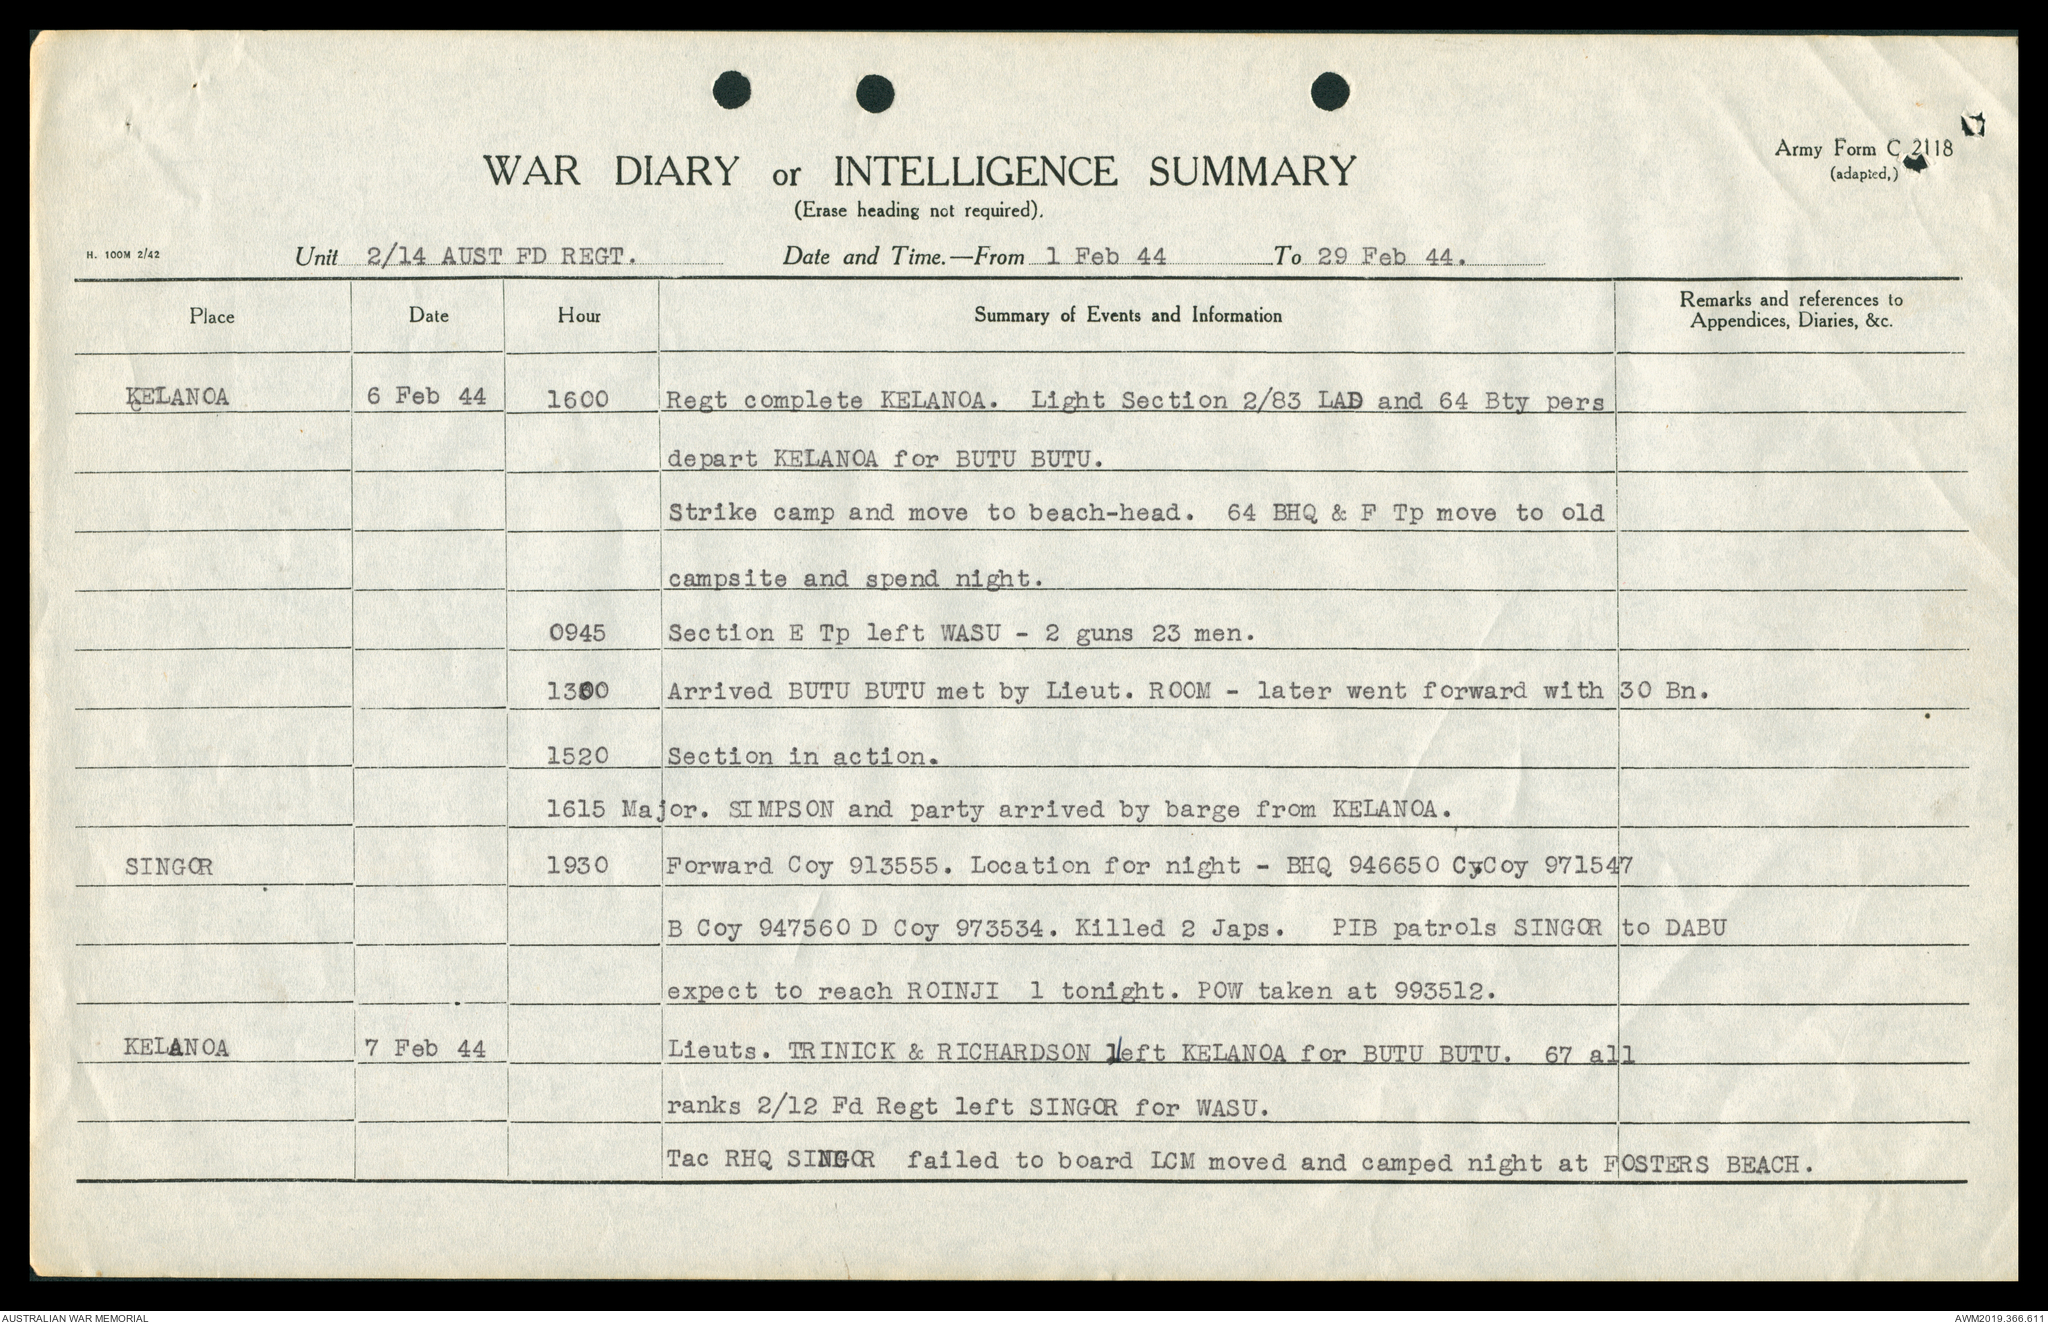 Army Form C 2118
(adapted,)
WAR DIARY or INTELLIGENCE SUMMARY
(Erase heading not required).
H. 100M 2/42 Unit 2/14 AUST FD REGT. Date and Time.—From 1 Feb 44 To 29 Feb 44.
Place Date Hour Summary of Events and Information Remarks and references to Appendices, Diaries, &c.
KELANOA 6 Feb 44 1600 Regt complete KELANOA. Light Section 2/83 LAD and 64 Bty pers
depart KELANOA for BUTU BUTU.
Strike camp and move to beach-head. 64 BHQ & F Tp move to old
campsite and spend night.
0945 Section E Tp left WASU - 2 guns 23 men.
1300 Arrived BUTU BUTU met by Lieut. ROOM - later went forward with 30 Bn.
1520 Section in action.
1615 Major. SIMPSON and party arrived by barge from KELANOA.
SINGOR 1930 Forward Coy 913555. Location for night - BHQ 946650 CyCoy 971547
B Coy 947560 D Coy 973534. Killed 2 Japs. PIB patrols SINGOR to DABU
expect to reach ROINJI 1 tonight. POW taken at 993512.
KELANOA 7 Feb 44 Lieuts. TRINICK & RICHARDSON left KELANOA for BUTU BUTU. 67 all
ranks 2/12 Fd Regt left SINGOR for WASU.
Tac RHQ SINGOR failed to board LCM moved and camped night at FOSTERS BEACH.
AUSTRALIAN WAR MEMORIAL AWM2019.366.611